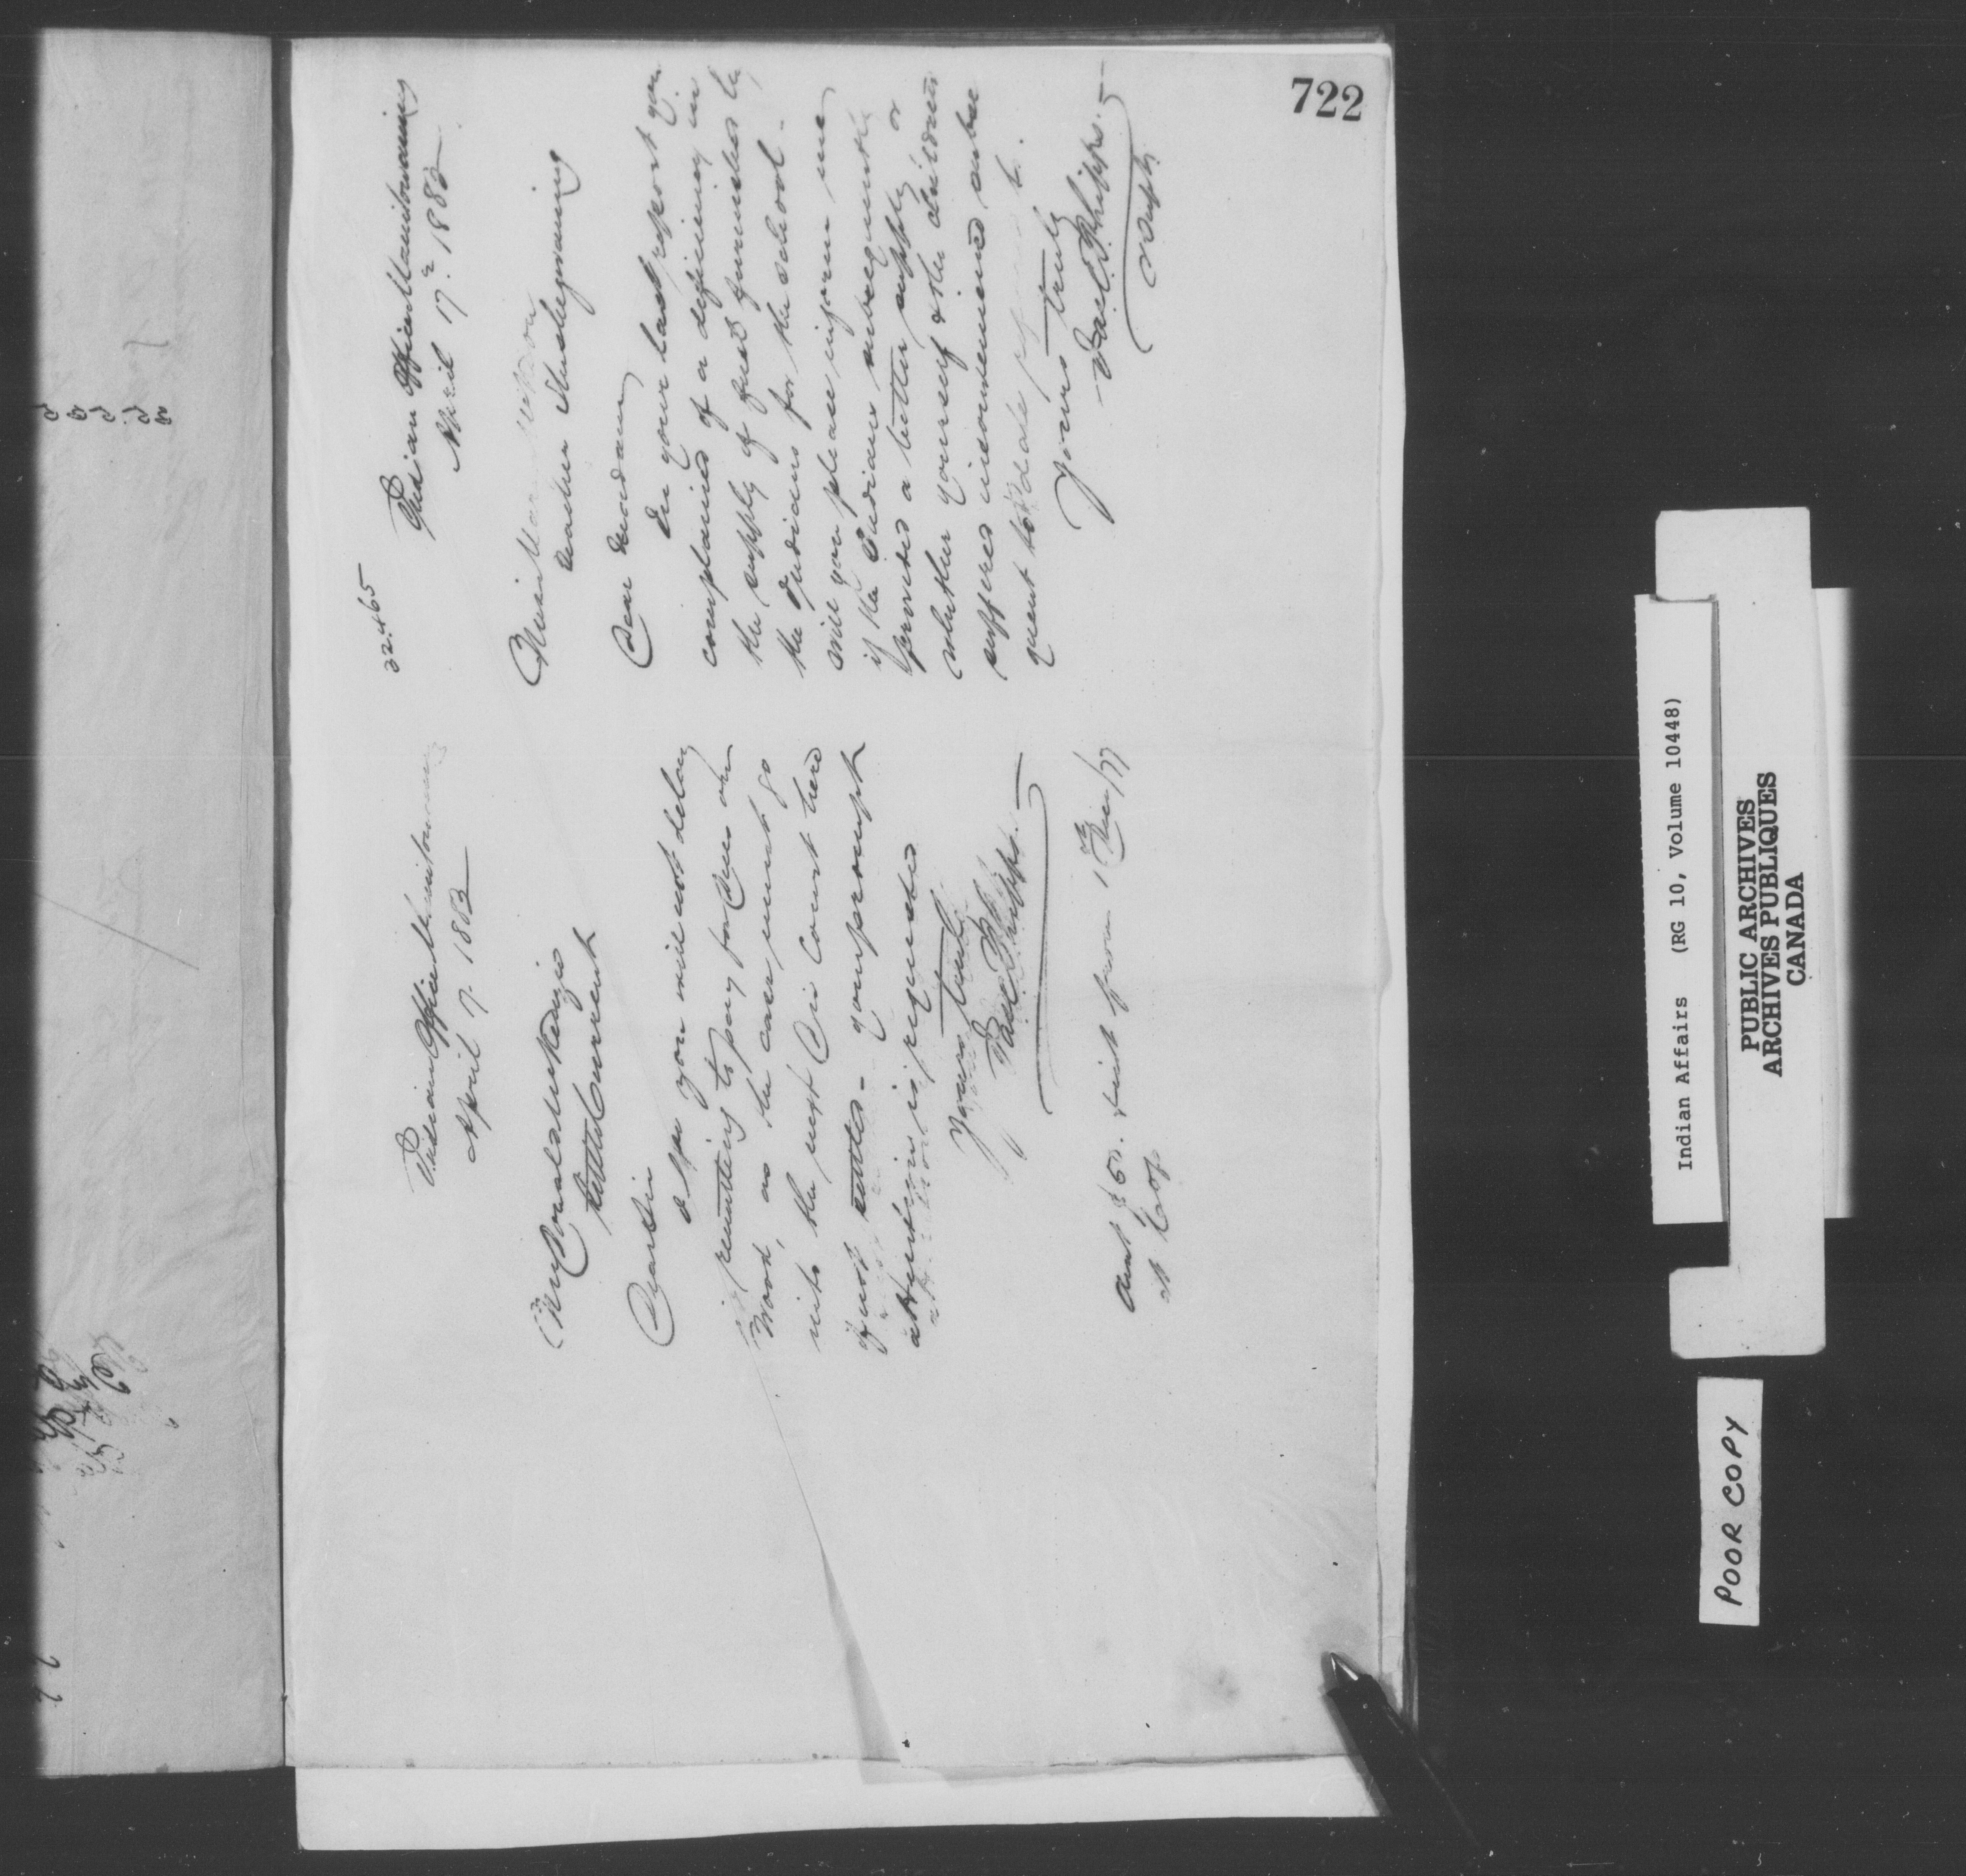 722
Indian Office Manitowaning
April 17. 1883
Mr Donald McKenzie
Little Current
Dear Sir
I hope you will not delay
remitting to pay for Dun or
Wood, as the case must go
into the next Div Court here
if not settled - your prompt
attention is requested
Yours truly
Jas C Phipps.
Amt $65. & int from 1st Dec/77
at
32.465
Indian Office Manitowaning
April 17. 1883
Miss
Teacher Sheshegwaning
Dear Madam
In your last report you
complained of a deficiency in
the supply of fuel furnished by
the Indians for the school -
Will you please inform me
if the Indians subsequently
provided a better supply or
whether yourself & the children
suffered inconvenience subse
quent to date of
Yours truly
Jas C Phipps.
V Supt.
Indian Affairs (RG 10, Volume 10448)
PUBLIC ARCHIVES
ARCHIVES PUBLIQUES
CANADA
POOR COPY